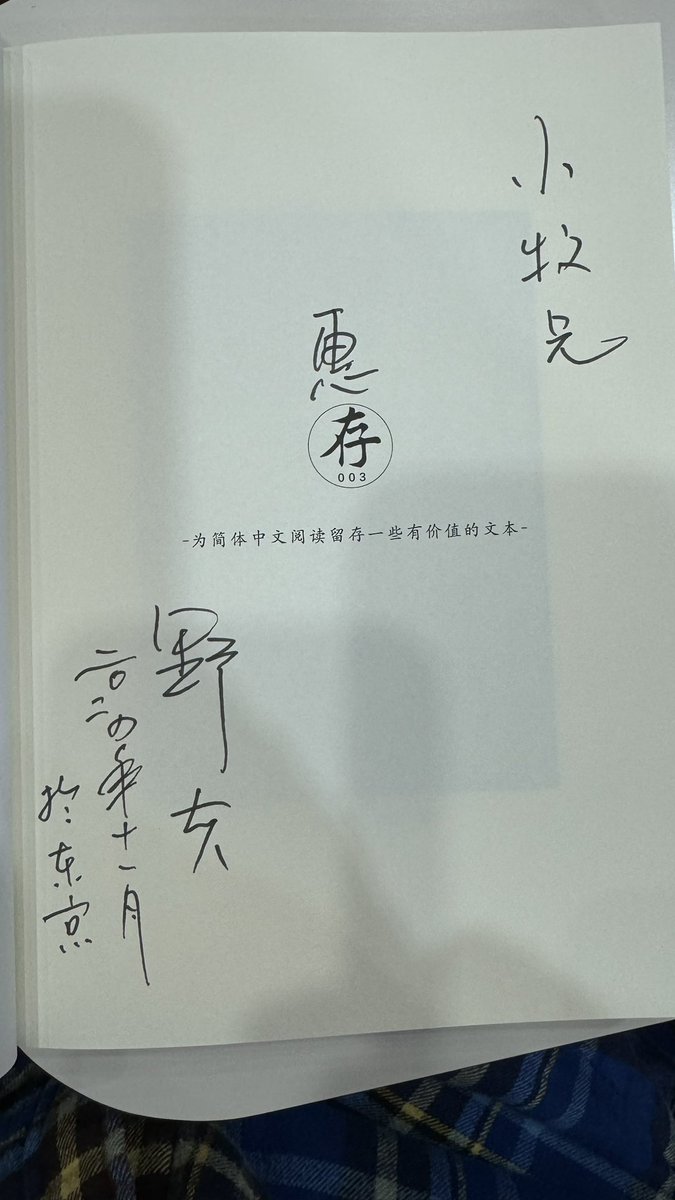 小牧兄
惠
存
003
-为简体中文阅读留存一些有价值的文本-
野夫
二〇二四年十一月
於东京